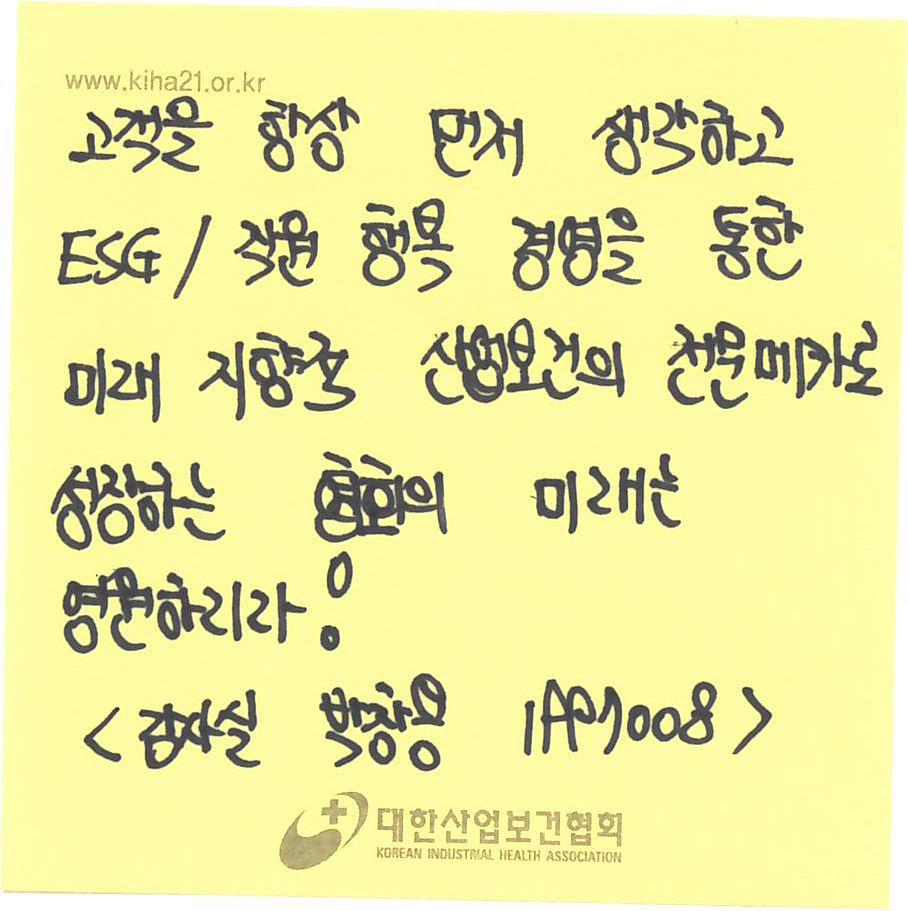 www.kiha21.or.kr
고객을 항상 먼저 생각하고
ESG / 직원 행복 경영을 통한
미래 지향적 산업보건의 전문메카로
성장하는 협회의 미래는
영원하리라!
<감사실 박창용 1AP1008>
대한산업보건협회
KOREAN INDUSTRIAL HEALTH ASSOCIATION